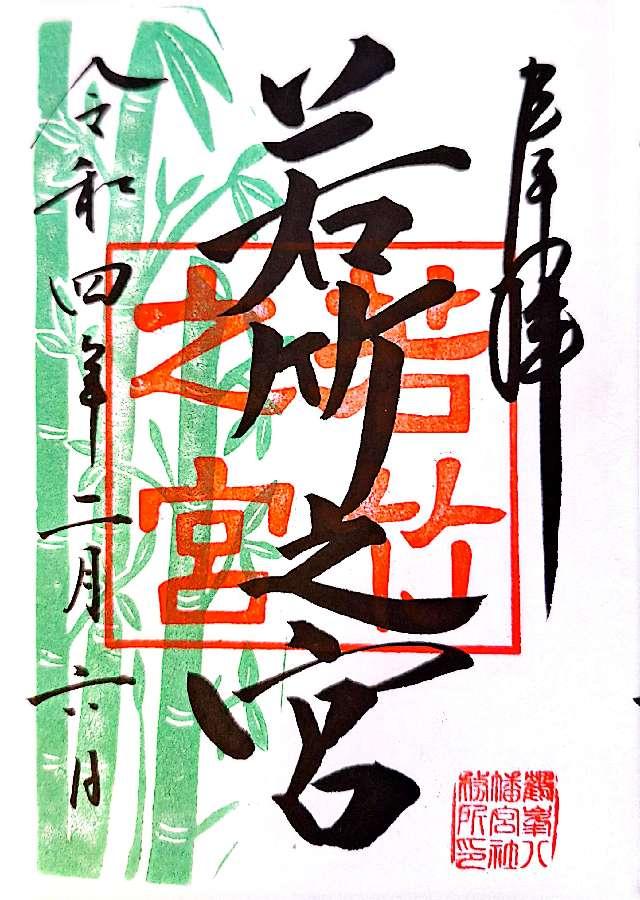 奉拝
若竹之宮
若竹
之宮
令和四年二月六日
鶴峯八
幡宮社
務所印